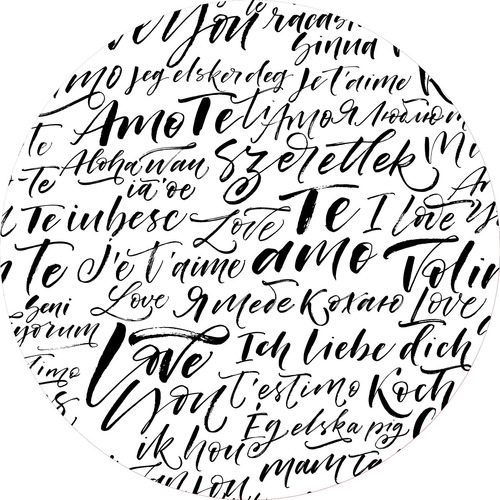 You
Sinua
Jeg elsker deg Je t'aime
Amo Te Ti Amo Я люблю
Te Aloha wau Szeretlek
-Te ia 'oe
Te iubesc Love Te I love
Te J'e t'aime amo
Seni Love Я тебе кохаю Love
yorum Love Ich liebe dich
You t'estimo Koch
Ég elska þig
ik hou mam ta